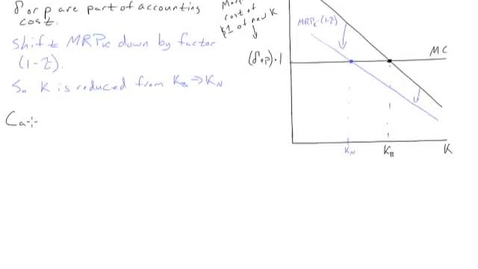 δ or ρ are part of accounting
cost.
Shift MRPK down by factor
(1-τ).
So K is reduced from KB → KN
Ca
cost of
$1 of new K
MRPK·(1-τ)
(δ+ρ)·1
MC
KN
KB
K